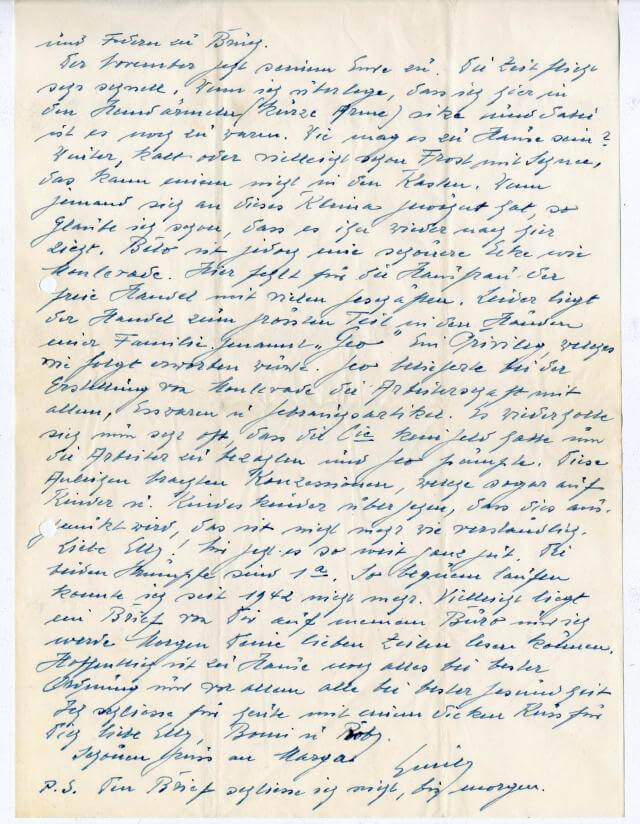 und Federn zu Brig.
Der November geht seinem Ende zu. Die Zeit flieht
sehr schnell. Wenn ich überlege, dass ich hier in
den Hemdärmeln (kurze Arme) sitze und dabei
ist es noch zu warm. Wie mag es zu Hause sein?
Winter, kalt oder vielleicht schon Frost mit Schnee,
das kann einem nicht in den Kasten. Wenn
jemand sich an dieses Klima gewöhnt hat, so
glaube ich schon, dass es ihn wieder nach hier
zieht. Belo ist jedoch eine schönere Ecke wie
Monlevade. Hier fehlt für die Hausfrau der
freie Handel mit vielen Geschäften. Leider liegt
der Handel zum grössten Teil in den Händen
einer Familie genannt "Geo" Ein Privileg, welches
wie folgt erworben wurde. Geo belieferte bei der
Erstellung von Monlevade die Arbeiterschaft mit
allem, Esswaren u Gebrauchsartikel. Es wiederholte
sich nun sehr oft, dass die Cie kein Geld hatte um
die Arbeiter zu bezahlen und Geo pumpte. Diese
Anleihen brachten Konzessionen, welche sogar auf
Kinder u. Kindeskinder übergehen, dass dies aus-
genützt wird, das ist nicht mehr wie verständlich.
Liebe Elly! Mir geht es so weit ganz gut. Die
beiden Stümpfe sind 1a. So bequem laufen
konnte ich seit 1942 nicht mehr. Vielleicht liegt
ein Brief von Dir auf meinem Büro und ich
werde Morgen Deine lieben Zeilen lesen können.
Hoffentlich ist zu Hause noch alles bei bester
Ordnung und vor allem alle bei bester Gesundheit
Ich schliesse für heute mit einem dicken Kuss für
Dich liebe Elly, Bomi u Roby.
Schönen Gruss an Marga
Emil
P.S. Den Brief schliesse ich nicht, bis morgen.